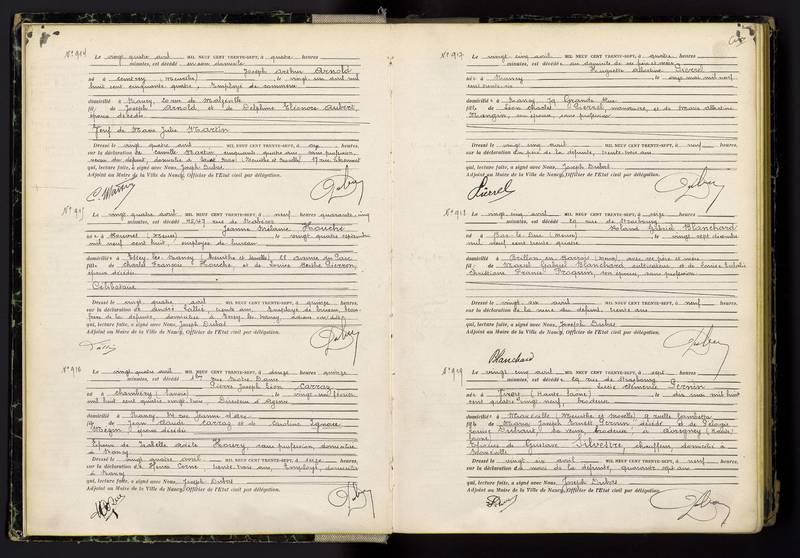 N° 914
Le vingt quatre avril MIL NEUF CENT TRENTE-SEPT, à quatre heures
minutes, est décédé en son domicile
Joseph Arthur Arnold
né à (Meurthe) le vingt un avril mil
huit cent cinquante quatre, Employé de commerce
domicilié à Nancy, 20 rue de Malzéville
fils de Joseph Arnold et de Delphine Eléonore Aubert,
époux décédés
Veuf de Marie Julie Martin
Dressé le vingt quatre avril MIL NEUF CENT TRENTE-SEPT, à onze heures,
sur la déclaration de Camille Martin cinquante quatre ans, sans profession,
neveu du défunt, domicilié à Saint Max (Meurthe et Moselle) 17 rue
qui, lecture faite, a signé avec Nous, Joseph Dubas
Adjoint au Maire de la Ville de Nancy, Officier de l'Etat civil par délégation.
C. Martin
N° 915
Le vingt quatre avril MIL NEUF CENT TRENTE-SEPT, à neuf heures quarante cinq
minutes, est décédée 45/47 rue de Nabécor
Jeanne Mélanie Houche
née à (Meuse) le vingt quatre septembre
mil neuf cent huit, employée de bureau
domiciliée à Essey les Nancy (Meurthe et Moselle), 28 avenue du Parc
fille de Charles François Houche, et de Louise Berthe Pierron,
époux décédés
Célibataire
Dressé le vingt quatre avril MIL NEUF CENT TRENTE-SEPT, à quinze heures,
sur la déclaration de André trente ans, Employé de bureau, beau
frère de la défunte, domicilié à Essey les Nancy,
qui, lecture faite, a signé avec Nous, Joseph Dubas
Adjoint au Maire de la Ville de Nancy, Officier de l'Etat civil par délégation.
N° 916
Le vingt quatre avril MIL NEUF CENT TRENTE-SEPT, à douze heures quinze
minutes, est décédé rue Notre Dame
Pierre Joseph Léon Carraz
né à Chambéry (Savoie) le vingt
mil huit cent quatre vingt trois Directeur d'Agence
domicilié à Nancy, rue Jeanne d'Arc
fils de Jean Claude Carraz et de Caroline
époux décédés
Epoux de Isabelle Adèle Houry, sans profession, domiciliée
à Nancy
Dressé le vingt quatre avril MIL NEUF CENT TRENTE-SEPT, à seize heures,
sur la déclaration de Henri Corne trente trois ans, Employé, domicilié
à Nancy
qui, lecture faite, a signé avec Nous, Joseph Dubas
Adjoint au Maire de la Ville de Nancy, Officier de l'Etat civil par délégation.
N° 917
Le vingt cinq avril MIL NEUF CENT TRENTE-SEPT, à quatre heures
minutes, est décédée au domicile de ses père et mère
Huguette Albertine Pierrel
née à Nancy le onze mai mil neuf
cent trente six
domiciliée à Nancy 79 Grande Rue
fille de Léon Charles Pierrel, manœuvre, et de Marie Albertine
Mangin, son épouse, sans profession
Dressé le vingt cinq avril MIL NEUF CENT TRENTE-SEPT, à neuf heures,
sur la déclaration du père de la défunte, trente trois ans
qui, lecture faite, a signé avec Nous, Joseph Dubas
Adjoint au Maire de la Ville de Nancy, Officier de l'Etat civil par délégation.
Pierrel
N° 918
Le vingt cinq avril MIL NEUF CENT TRENTE-SEPT, à seize heures
minutes, est décédé 29 rue de Strasbourg
Roland Gabriel Blanchard
né à Bar-le-Duc (Meuse) le vingt sept décembre
mil neuf cent trente quatre
domicilié à Brillon en Barrois (Meuse), avec ses père et mère
fils de Marcel Gabriel Blanchard cultivateur et de Louise
Christiane France son épouse, sans profession
Dressé le vingt six avril MIL NEUF CENT TRENTE-SEPT, à neuf heures,
sur la déclaration de la mère du défunt, trente ans
qui, lecture faite, a signé avec Nous, Joseph Dubas
Adjoint au Maire de la Ville de Nancy, Officier de l'Etat civil par délégation.
Blanchard
N° 919
Le vingt cinq avril MIL NEUF CENT TRENTE-SEPT, à sept heures
minutes, est décédée 29 rue de Strasbourg
Lucie Clémence Pernin
née à (Haute Saône) le dix mai mil huit
cent quatre vingt neuf, brodeuse
domiciliée à Maxéville (Meurthe et Moselle) 9 ruelle Gambetta
fille de Joseph Ernest Pernin décédé et de Pélagie
sa veuve, brodeuse, à (Haute
Saône)
Epouse de Gustave Silvestre, chauffeur, domicilié à
Maxéville
Dressé le vingt six avril MIL NEUF CENT TRENTE-SEPT, à neuf heures,
sur la déclaration du mari de la défunte, quarante sept ans
qui, lecture faite, a signé avec Nous, Joseph Dubas
Adjoint au Maire de la Ville de Nancy, Officier de l'Etat civil par délégation.